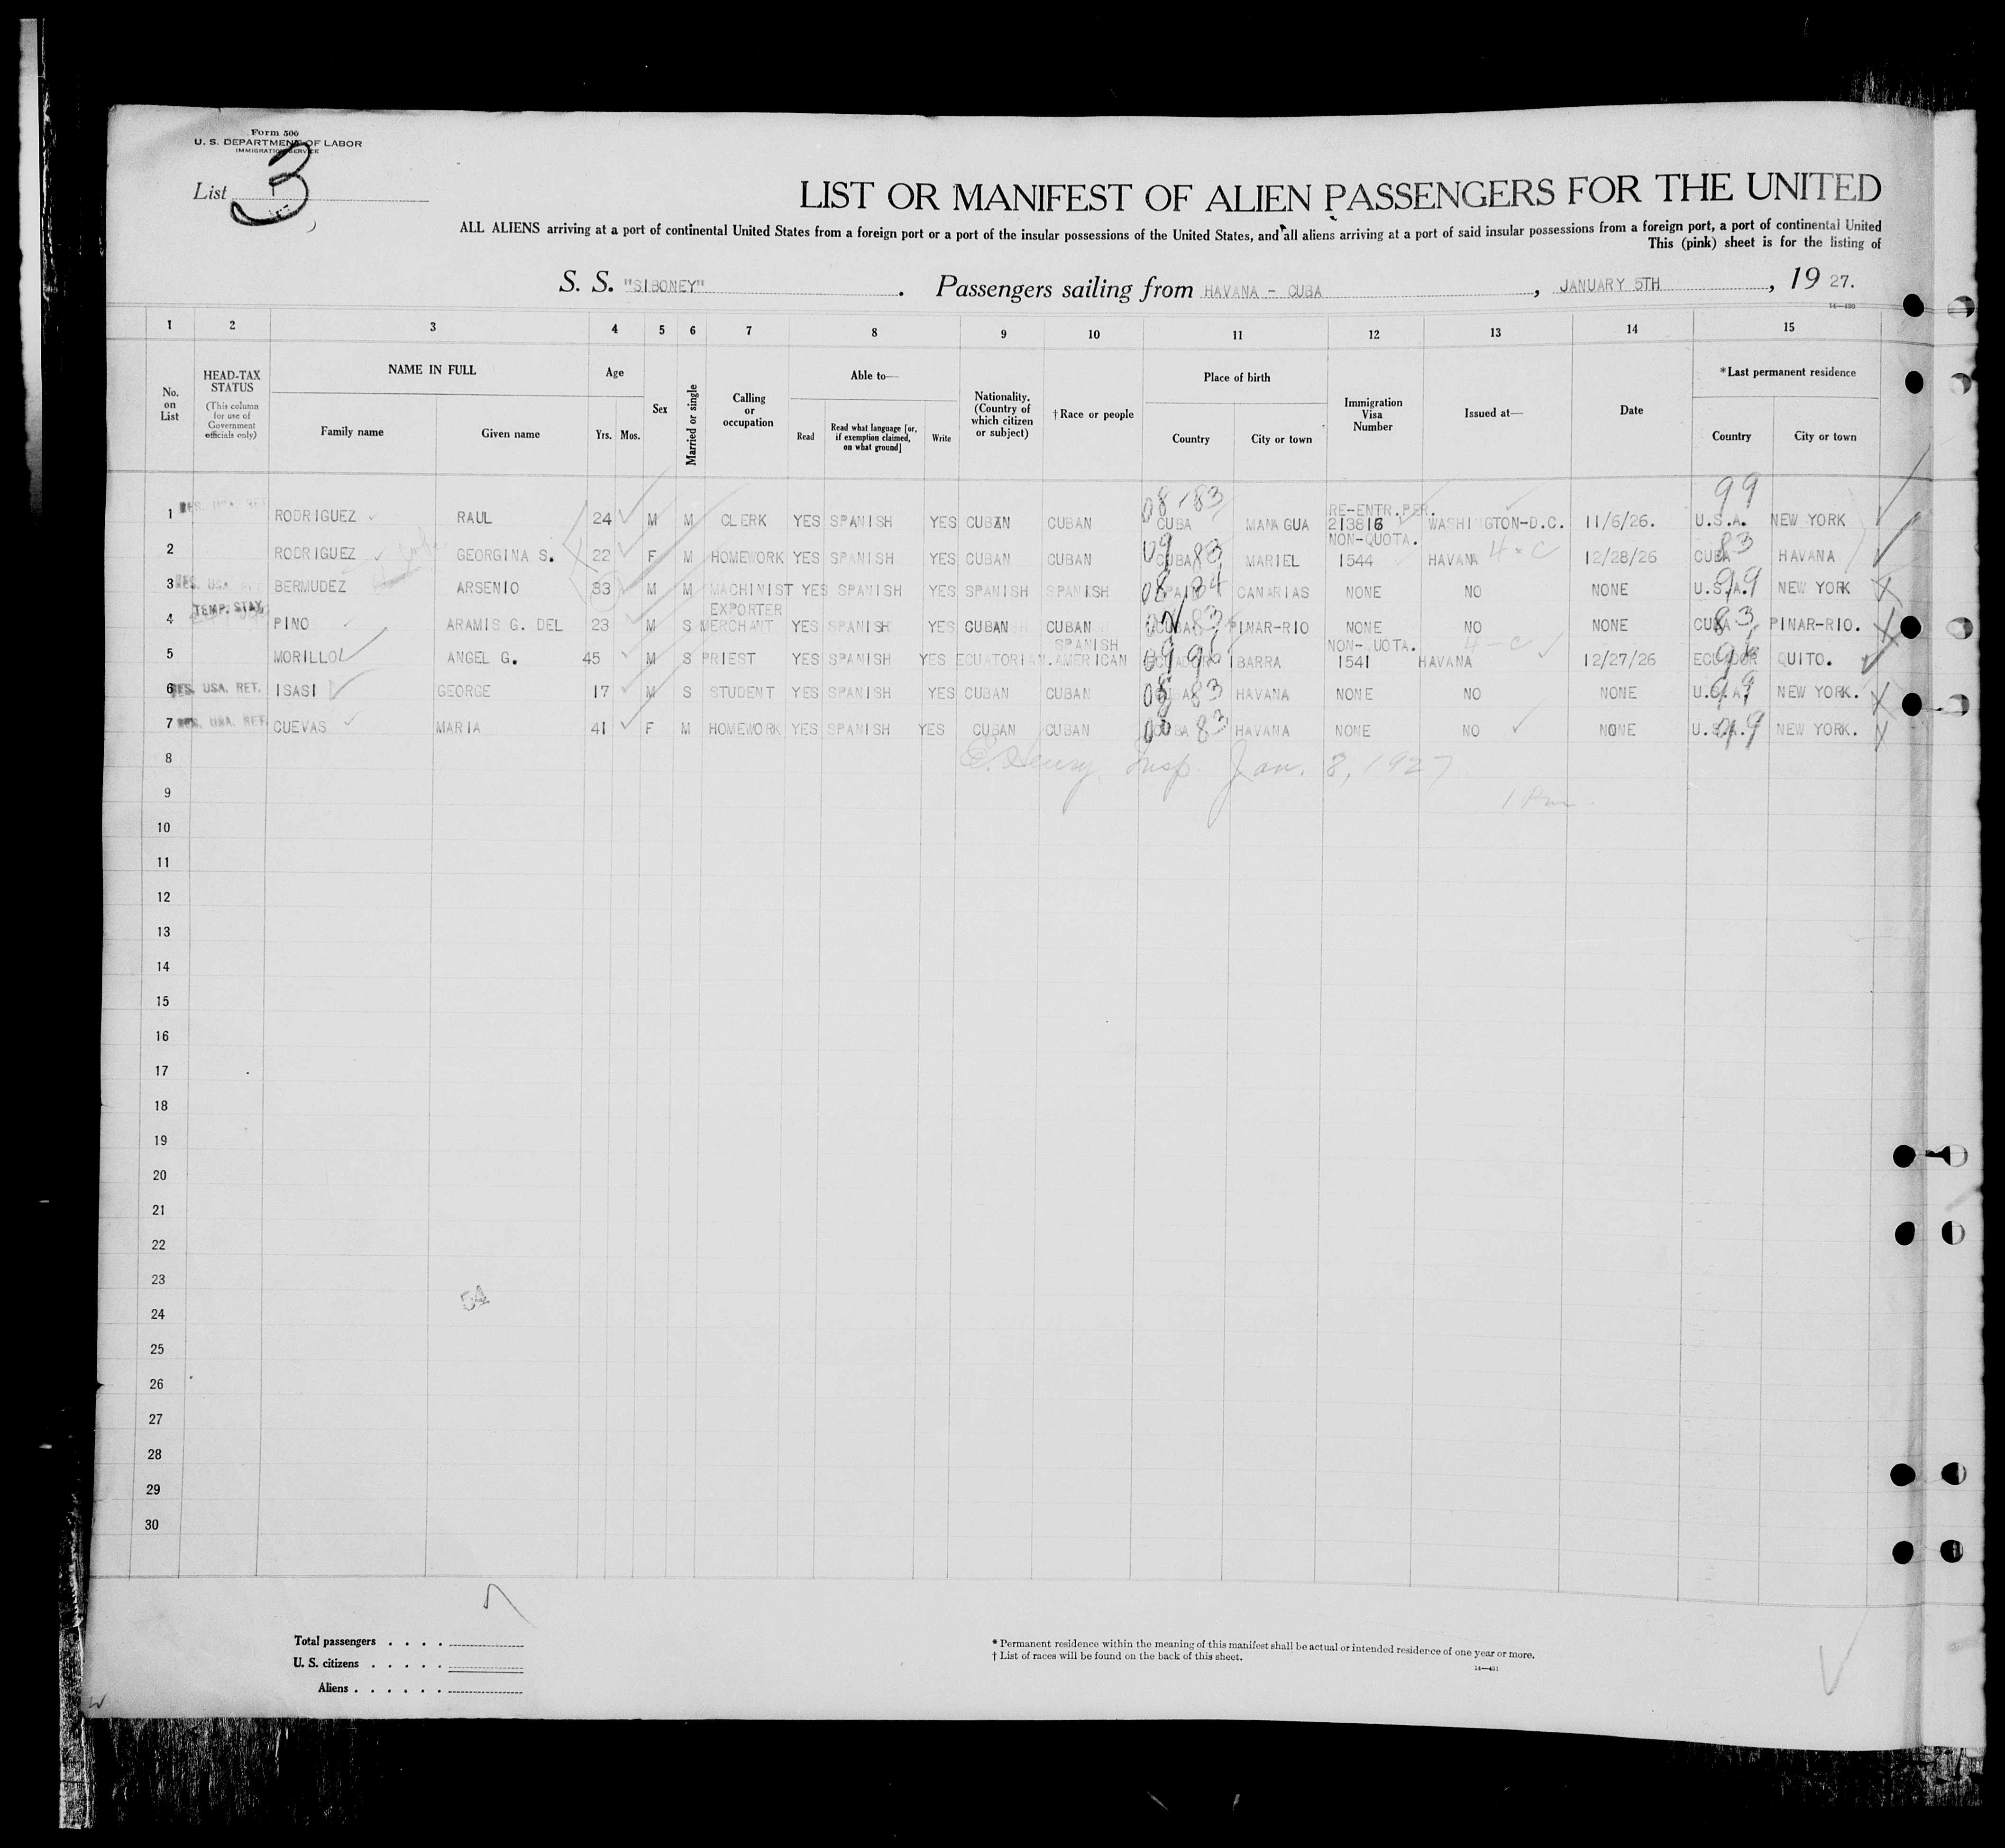 Form 500
U. S. DEPARTMENT OF LABOR
IMMIGRATION SERVICE
List 3
LIST OR MANIFEST OF ALIEN PASSENGERS FOR THE UNITED
ALL ALIENS arriving at a port of continental United States from a foreign port or a port of the insular possessions of the United States, and all aliens arriving at a port of said insular possessions from a foreign port, a port of continental United
This (pink) sheet is for the listing of
S. S. "SIBONEY" . Passengers sailing from HAVANA - CUBA , JANUARY 5TH , 19 27.
14-430
1 2 3 4 5 6 7 8 9 10 11 12 13 14 15
No. on List
HEAD-TAX STATUS (This column for use of Government officials only)
NAME IN FULL
Family name Given name
Age
Yrs. Mos.
Sex
Married or single
Calling or occupation
Able to—
Read Read what language [or, if exemption claimed, on what ground] Write
Nationality. (Country of which citizen or subject)
† Race or people
Place of birth
Country City or town
Immigration Visa Number
Issued at—
Date
* Last permanent residence
Country City or town
08-83 99
RE-ENTR.PER.
1 RODRIGUEZ RAUL 24 M M CLERK YES SPANISH YES CUBAN CUBAN CUBA MANAGUA 213816 WASHINGTON-D.C. 11/6/26. U.S.A. NEW YORK
NON-QUOTA.
2 RODRIGUEZ GEORGINA S. 22 F M HOMEWORK YES SPANISH YES CUBAN CUBAN CUBA 83 MARIEL 1544 HAVANA 4-C 12/28/26 CUBA 83 HAVANA
3 RES. USA. RET. BERMUDEZ ARSENIO 33 M M MACHINIST YES SPANISH YES SPANISH SPANISH SPAIN CANARIAS NONE NO NONE U.S.A. 99 NEW YORK
TEMP. STAY EXPORTER
4 PINO ARAMIS G. DEL 23 M S MERCHANT YES SPANISH YES CUBAN CUBAN CUBA 83 PINAR-RIO NONE NO NONE CUBA 83 PINAR-RIO.
SPANISH NON-QUOTA. 4-C
5 MORILLO ANGEL G. 45 M S PRIEST YES SPANISH YES ECUATORIAN. AMERICAN ECUADOR 96 IBARRA 1541 HAVANA 12/27/26 ECUADOR 96 QUITO.
6 RES. USA. RET. ISASI GEORGE 17 M S STUDENT YES SPANISH YES CUBAN CUBAN CUBA 83 HAVANA NONE NO NONE U.S.A. 99 NEW YORK.
7 RES. USA. RET. CUEVAS MARIA 41 F M HOMEWORK YES SPANISH YES CUBAN CUBAN CUBA 83 HAVANA NONE NO NONE U.S.A. 99 NEW YORK.
8 E. Henry Insp. Jan. 8, 1927
9
10
11
12
13
14
15
16
17
18
19
20
21
22
23
54
24
25
26
27
28
29
30
Total passengers . . . .
U. S. citizens . . . . .
Aliens . . . . . .
* Permanent residence within the meaning of this manifest shall be actual or intended residence of one year or more.
† List of races will be found on the back of this sheet.
14-431